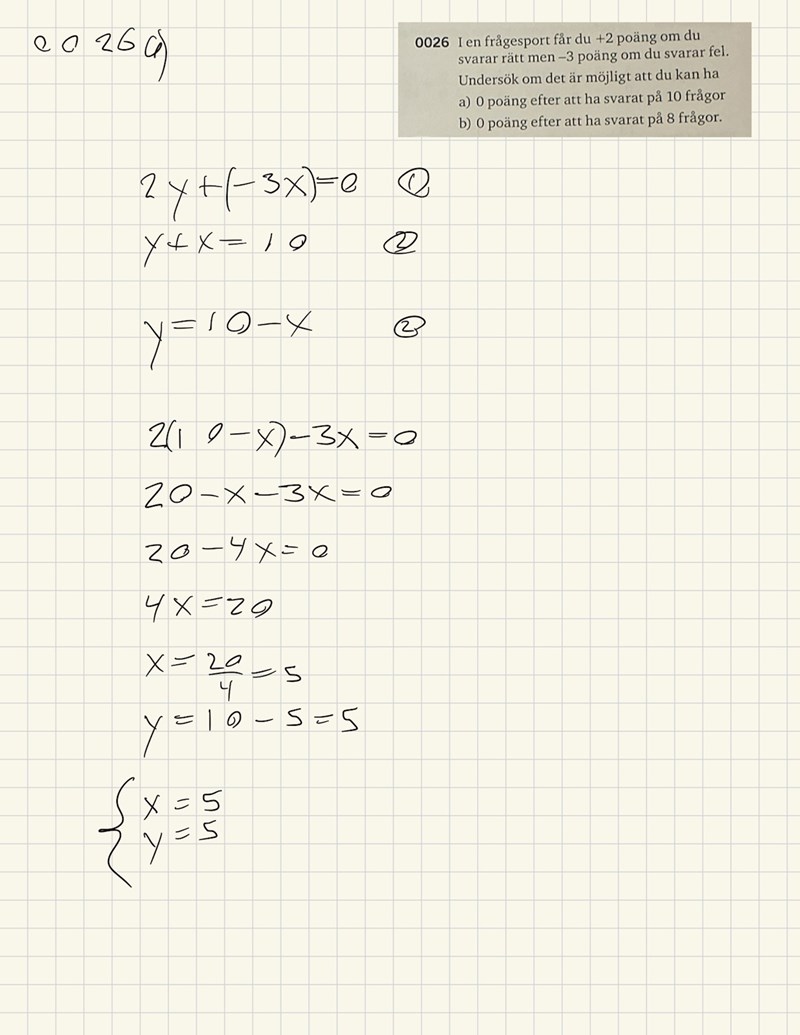 0026 a)
0026 I en frågesport får du +2 poäng om du
svarar rätt men –3 poäng om du svarar fel.
Undersök om det är möjligt att du kan ha
a) 0 poäng efter att ha svarat på 10 frågor
b) 0 poäng efter att ha svarat på 8 frågor.
2y+(-3x)=0 ①
y+x=10 ②
y=10-x ②
2(10-x)-3x=0
20-x-3x=0
20-4x=0
4x=20
x=20/4=5
y=10-5=5
{x=5
y=5